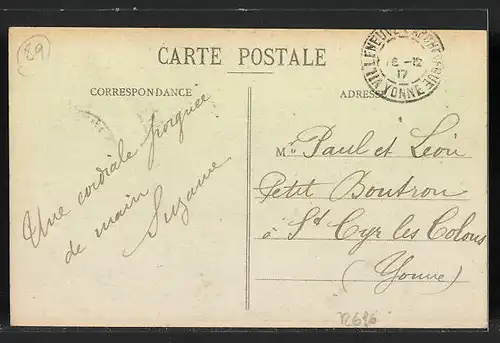 89
CARTE POSTALE
CORRESPONDANCE
ADRESSE
VILLENEUVE
YONNE
6 -12
17
Une cordiale poignée
de main
Suzanne
Mrs Paul et Léon
Petit Boutron
à St Cyr les Colons
(Yonne)